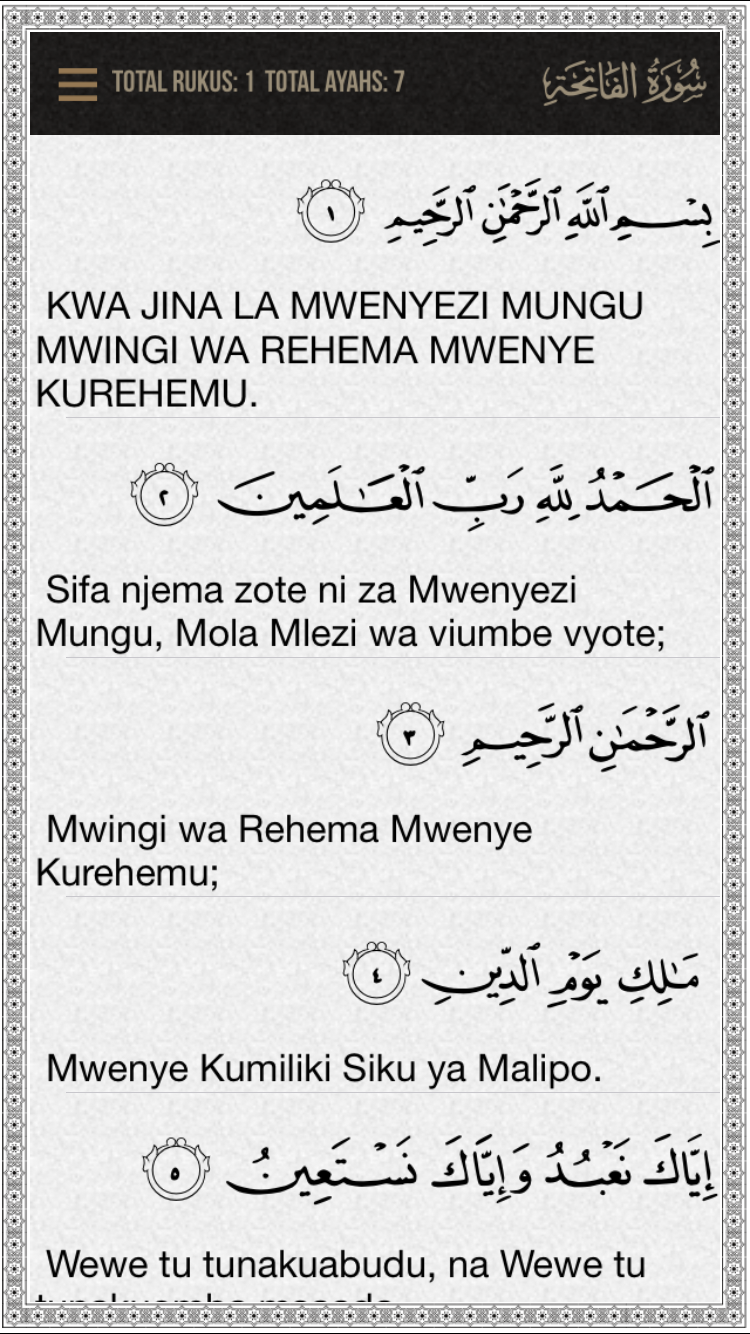 TOTAL RUKUS: 1 TOTAL AYAHS: 7 سُورَةُ الفَاتِحَةِ
بِسْمِ ٱللَّهِ ٱلرَّحْمَٰنِ ٱلرَّحِيمِ ١
KWA JINA LA MWENYEZI MUNGU
MWINGI WA REHEMA MWENYE
KUREHEMU.
ٱلْحَمْدُ لِلَّهِ رَبِّ ٱلْعَٰلَمِينَ ٢
Sifa njema zote ni za Mwenyezi
Mungu, Mola Mlezi wa viumbe vyote;
ٱلرَّحْمَٰنِ ٱلرَّحِيمِ ٣
Mwingi wa Rehema Mwenye
Kurehemu;
مَٰلِكِ يَوْمِ ٱلدِّينِ ٤
Mwenye Kumiliki Siku ya Malipo.
إِيَّاكَ نَعْبُدُ وَإِيَّاكَ نَسْتَعِينُ ٥
Wewe tu tunakuabudu, na Wewe tu